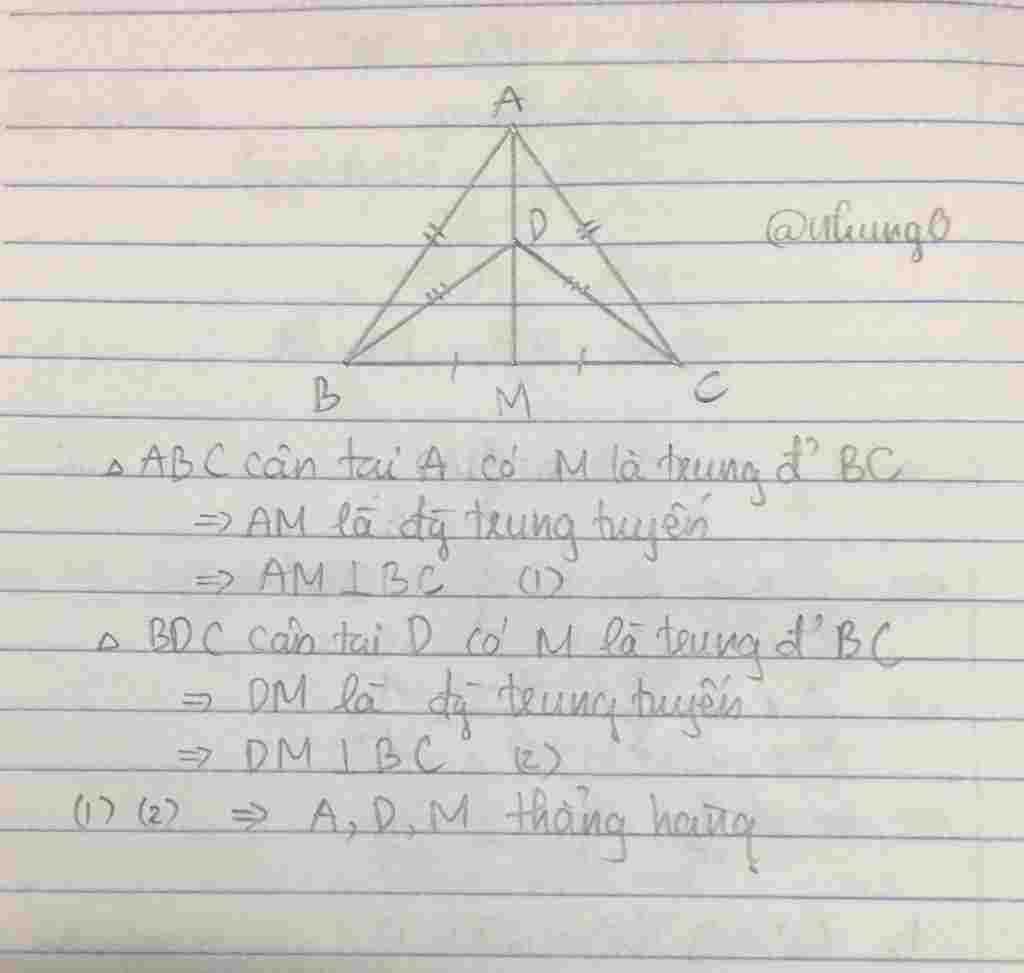 A
D
@nhung0
B M C
△ ABC cân tai A có M là trung đ' BC
=> AM là đg trung tuyến
=> AM ⊥ BC (1)
△ BDC cân tai D có M là trung đ' BC
=> DM là đg trung tuyến
=> DM ⊥ BC (2)
(1) (2) => A, D, M thẳng hàng